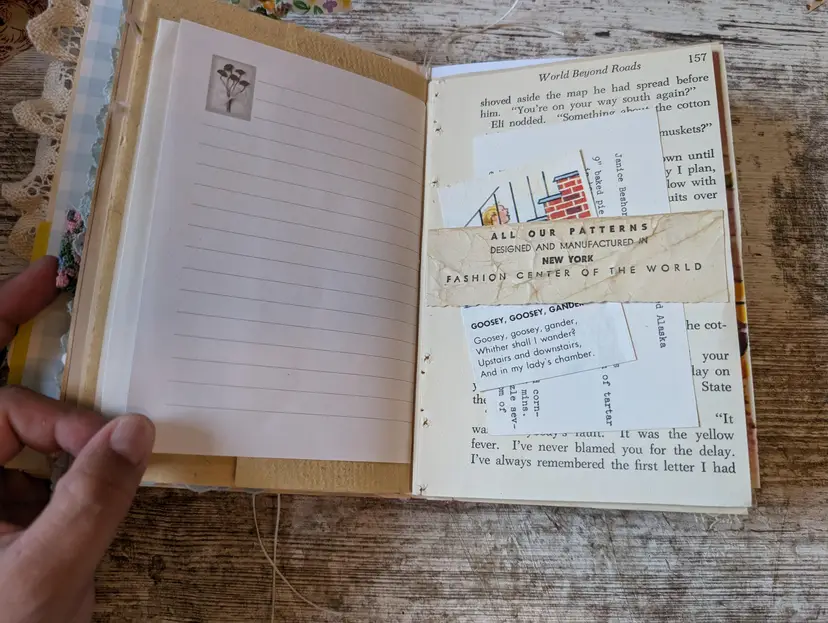 157
World Beyond Roads
shoved aside the map he had spread before
him. "You're on your way south again?"
Eli nodded. "Something about the cotton
muskets?"
own until
y I plan,
low with
uits over
Janice
9" baked pie
ALL OUR PATTERNS
DESIGNED AND MANUFACTURED IN
NEW YORK
FASHION CENTER OF THE WORLD
GOOSEY, GOOSEY, GANDER
Goosey, goosey, gander,
Whither shall I wander?
Upstairs and downstairs,
And in my lady's chamber.
d Alaska
of tartar
d corn-
mins.
zle sev-
om of
he cot-
your
lay on
State
the
"It
fault. It was the yellow
fever. I've never blamed you for the delay.
I've always remembered the first letter I had